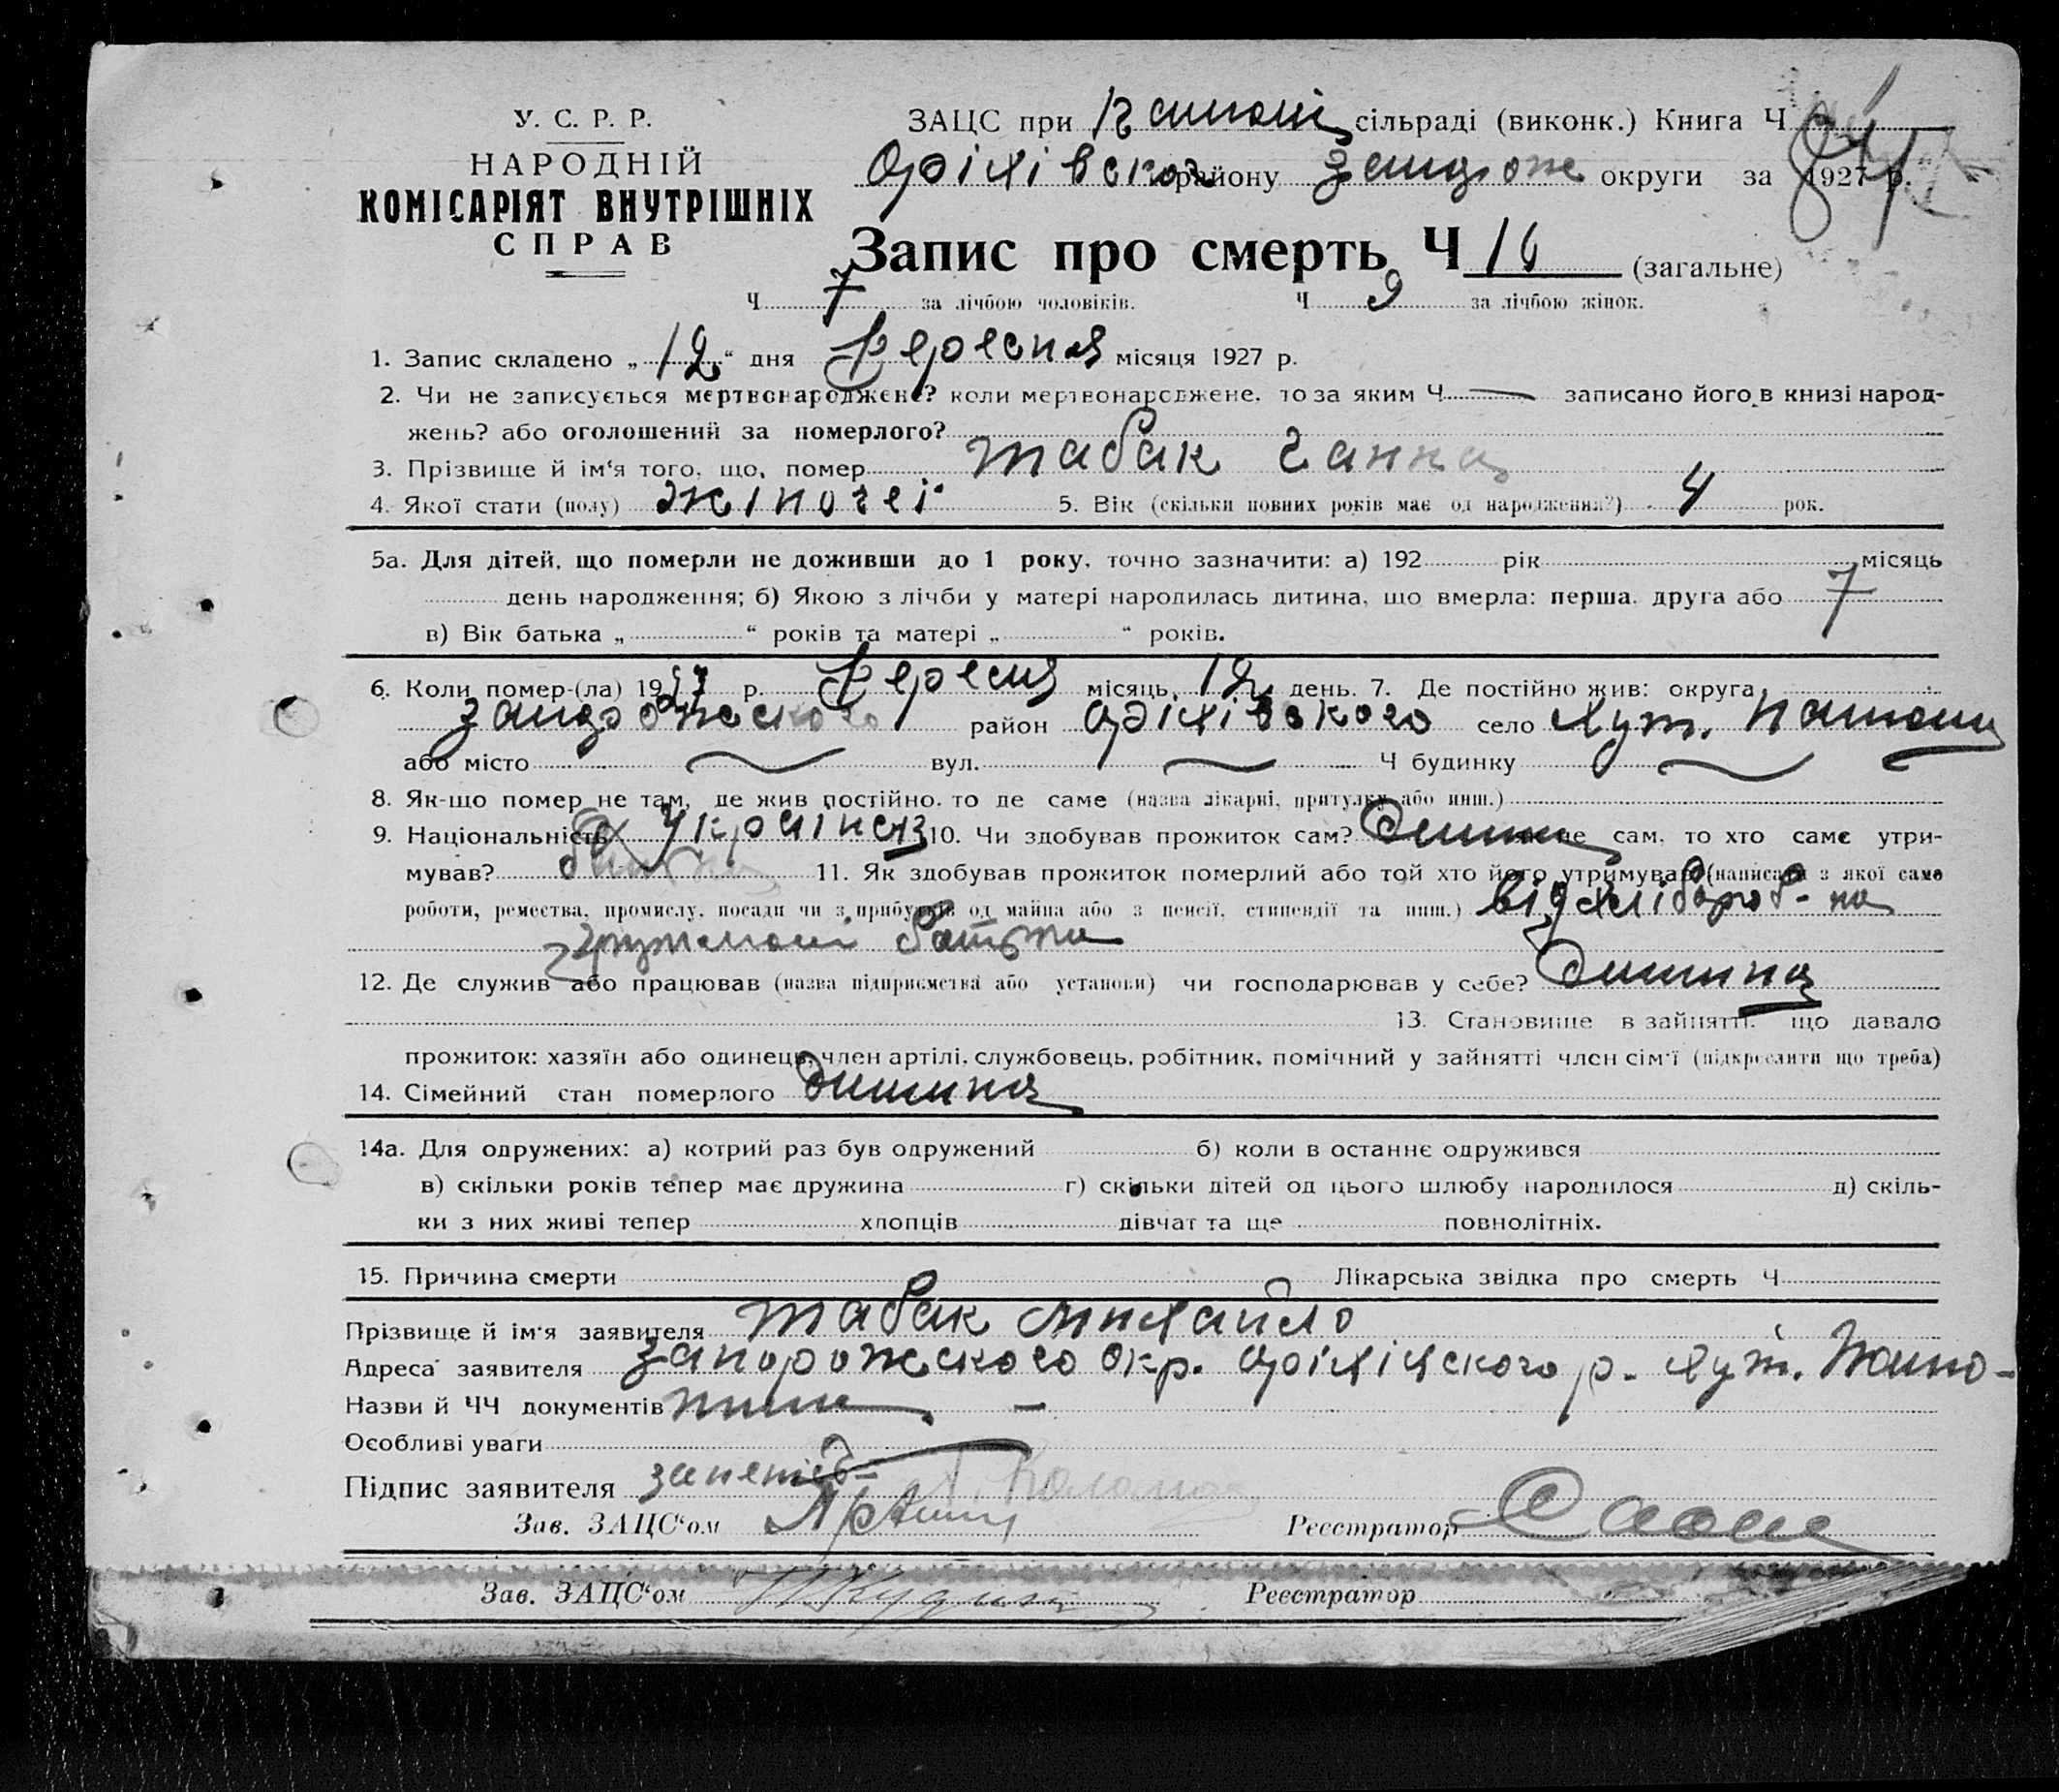 У. С. Р. Р.
НАРОДНІЙ
КОМІСАРІЯТ ВНУТРІШНІХ
СПРАВ
ЗАЦС при сільраді (виконк.) Книга Ч
Оріхівского району Запорож округи за 1927 р.
Запис про смерть Ч 16 (загальне)
Ч 7 за лічбою чоловіків. Ч 9 за лічбою жінок.
1. Запис складено „ 12 “ дня Вересня місяця 1927 р.
2. Чи не записується мертвонароджене? коли мертвонароджене, то за яким Ч — записано його в книзі народ-
жень? або оголошений за померлого?
3. Прізвище й ім‘я того, що, помер Табак Ганна
4. Якої стати (полу) жіночеі 5. Вік (скільки повних років має од народження?) 4 рок.
5а. Для дітей, що померли не доживши до 1 року, точно зазначити: а) 192 рік місяць
день народження; б) Якою з лічби у матері народилась дитина, що вмерла: перша, друга або 7
в) Вік батька „ “ років та матері „ “ років.
6. Коли помер-(ла) 1927 р. Вересня місяць, 12 день. 7. Де постійно жив: округа
Запорожского район Оріхівского село Хут.
або місто вул. Ч будинку
8. Як-що помер не там, де жив постійно, то де саме (назва лікарні, притулку або инш.)
9. Національність Українка 10. Чи здобував прожиток сам? Дитина не сам, то хто саме утри-
мував? 11. Як здобував прожиток померлий або той хто його утримував (написати з якої само
роботи, ремества, промислу, посади чи з прибутків од майна або з пенсії, стипендії та инш.) від хлібороб- на
батька
12. Де служив або працював (назва підприємства або установи) чи господарював у себе? Дитина
13. Становище в зайнятті, що давало
прожиток: хазяїн або одинець, член артілі, службовець, робітник, помічний у зайнятті член сім‘ї (підкреслити що треба)
14. Сімейний стан померлого Дитина
14а. Для одружених: а) котрий раз був одружений б) коли в останнє одружився
в) скільки років тепер має дружина г) скільки дітей од цього шлюбу народилося д) скіль-
ки з них живі тепер хлопців дівчат та ще повнолітніх.
15. Причина смерти Лікарська звідка про смерть Ч
Прізвище й ім‘я заявителя Табак Михайло
Адреса заявителя Запорожского окр. Оріхівского р. хут.
Назви й ЧЧ документів
Особливі уваги
Підпис заявителя
Зав. ЗАЦС‘ом Реєстратор
Зав. ЗАЦС‘ом Реєстратор